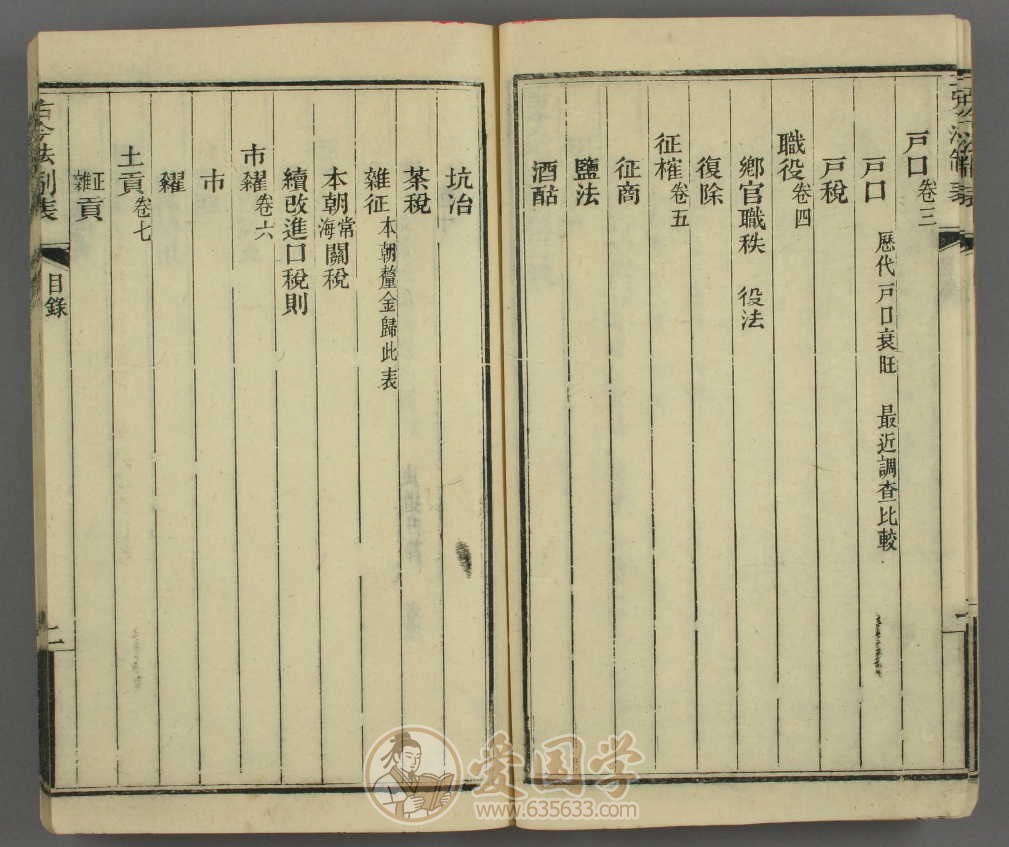 戸口卷三
戸口 歷代戸口衰旺 最近調查比較
戸稅
職役卷四
鄉官職秩 役法
復除
征榷卷五
征商
鹽法
酒酤
坑冶
茶稅
雜征本朝釐金歸此表
本朝常海關稅
續改進口稅則
市糴卷六
市
糴
土貢卷七
正雜貢
古今法制表
目錄
二
爱国学
www.635633.com